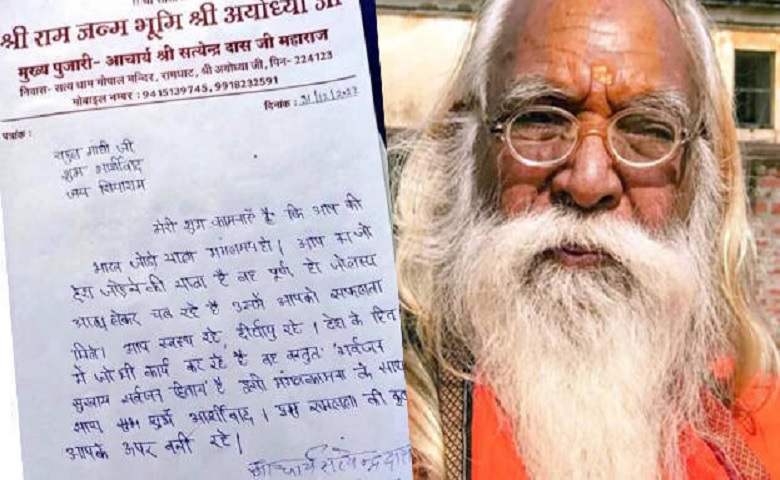 श्री राम जन्म भूमि श्री अयोध्या जी
मुख्य पुजारी- आचार्य श्री सत्येन्द्र दास जी महाराज
निवास- सत्य धाम गोपाल मन्दिर, रामघाट, श्री अयोध्या जी, पिन- 224123
मोबाइल नम्बर : 9415139745, 9918232591
पत्रांक : दिनांक : 31/12/2022
राहुल गांधी जी
शुभ आर्शीवाद
जय सियाराम
मेरी शुभ कामनाएँ है कि आप की
भारत जोड़ो यात्रा मंगलमय हो। आप का जो
देश जोड़ने की यात्रा है वह पूर्ण हो जो लक्ष्य
लेकर चल रहे है उसमें आपको सफलता
मिले। आप स्वस्थ रहे, दीर्घायु रहे। देश के हित
में जो भी कार्य कर रहे है वह वस्तुतः सर्वजन
सुखाय सर्वजन हिताय है इसी मंगलकामना के साथ
शुभ आर्शीवाद। प्रभु रामलला की कृपा
आपके ऊपर बनी रहे।
आचार्य सत्येन्द्र दास